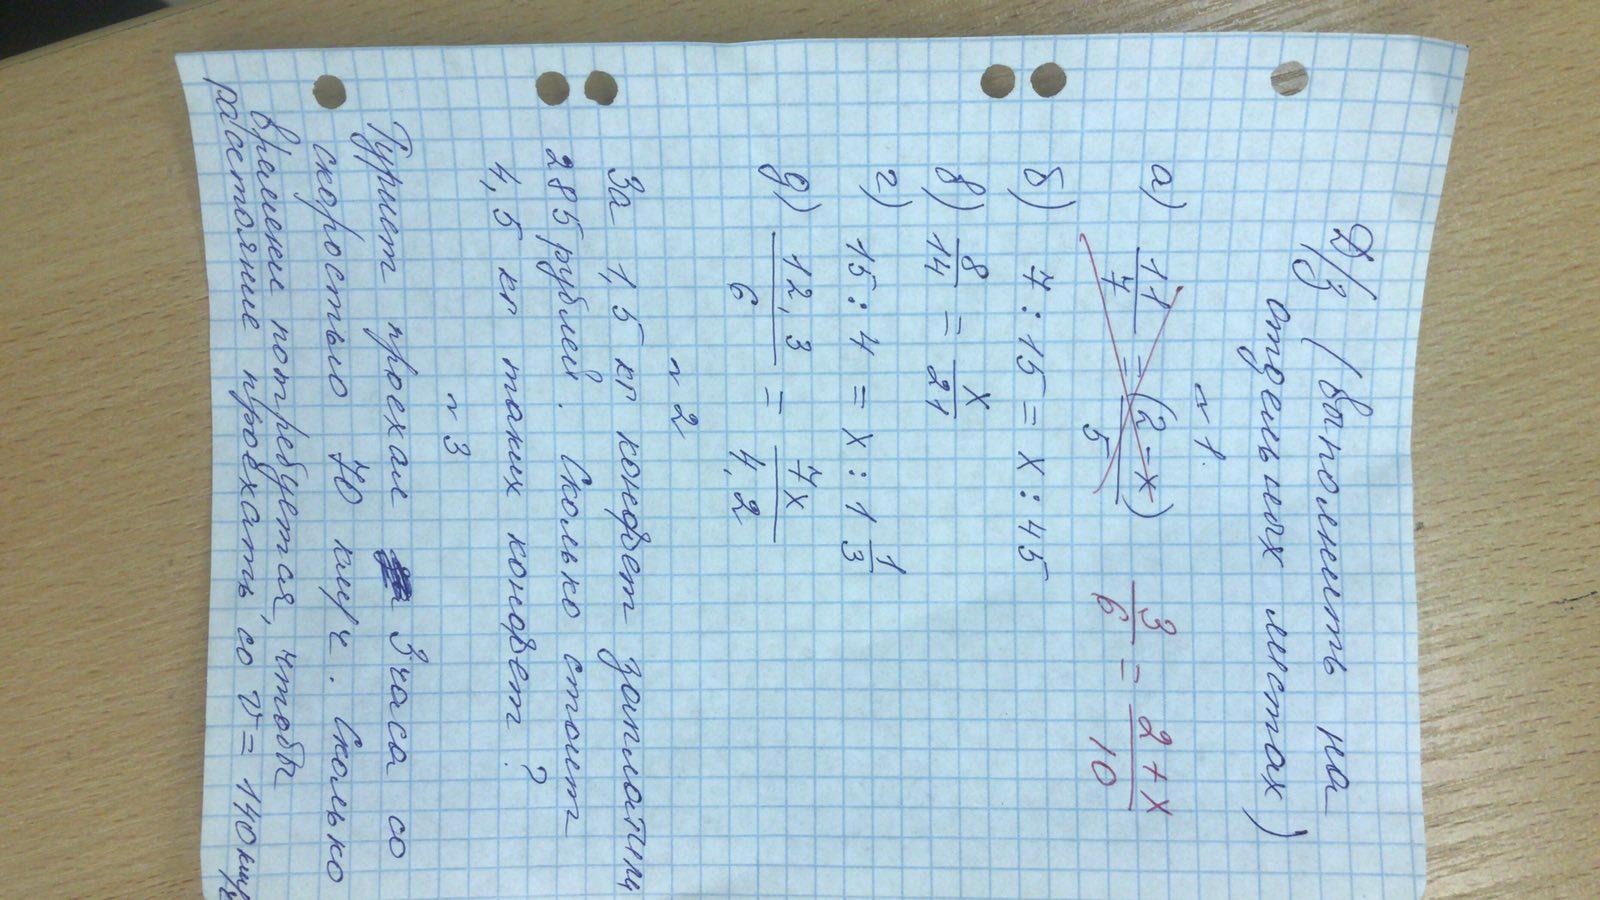 Д/З (выполнить на
отдельных листах)
№1.
а) 11/7 = (2-x)/5   3/6 = 2+x/10
б) 7:15 = x:45
в) 8/14 = x/21
г) 15:4 = x:1 1/3
д) 12,3/6 = 7x/4,2
№2
За 1,5 кг конфет заплатили
285 рублей. Сколько стоит
4,5 кг таких конфет?
№3
Турист проехал 3 часа со
скоростью 70 км/ч. Сколько
времени потребуется, чтобы
расстояние проехать со v = 140 км/ч